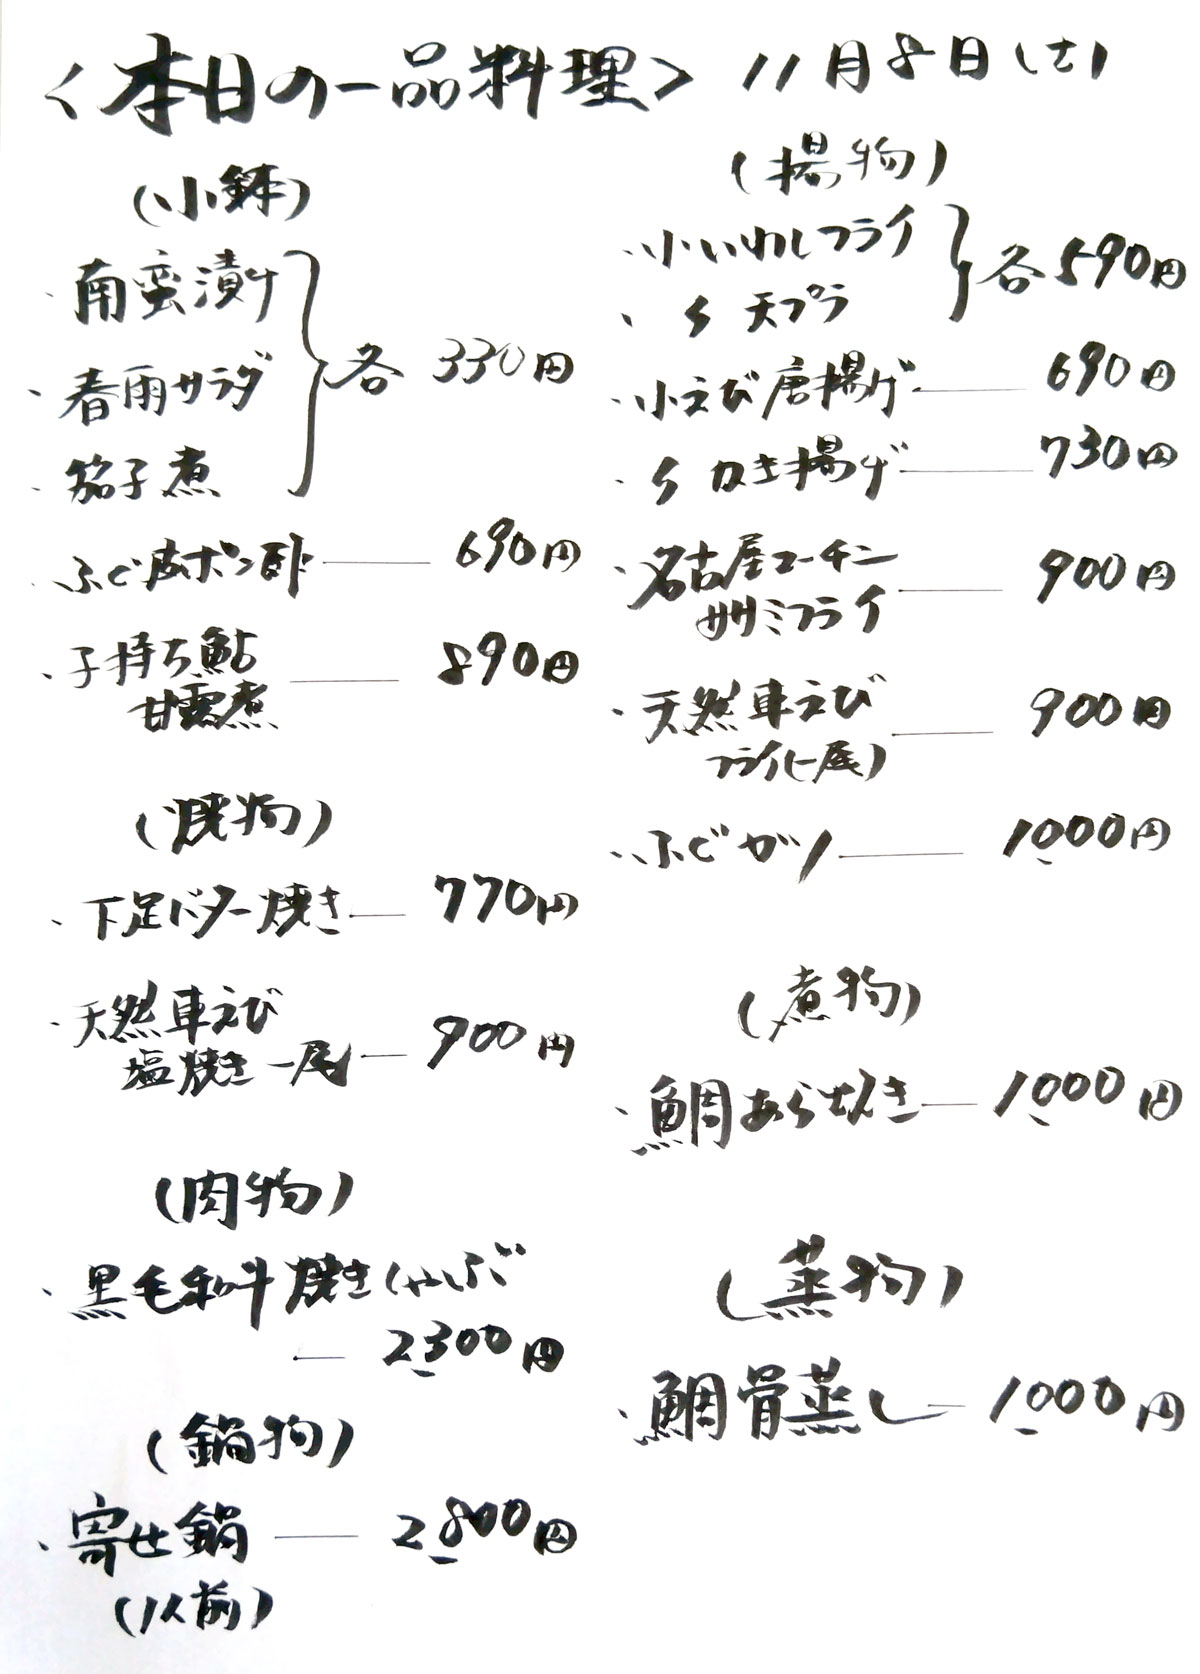 <本日の一品料理> 11月8日(土)
(小鉢)
・南蛮漬け
・春雨サラダ
・茄子煮
各 330円
・ふぐ皮ポン酢 — 690円
・子持ち鮎
甘露煮 — 890円
(焼物)
・下足バター焼き — 770円
・天然車えび
塩焼き一尾 — 900円
(肉物)
・黒毛和牛焼きしゃぶ
— 2,300円
(鍋物)
・寄せ鍋 — 2,800円
(1人前)
(揚物)
・小いわしフライ
・〃 天プラ
各590円
・小えび唐揚げ — 690円
・〃 かき揚げ — 730円
・名古屋コーチン
ササミフライ — 900円
・天然車えび
フライ(一尾) — 900円
・ふぐかツ — 1,000円
(煮物)
・鯛あら炊き — 1,000円
(蒸物)
・鯛骨蒸し — 1,000円